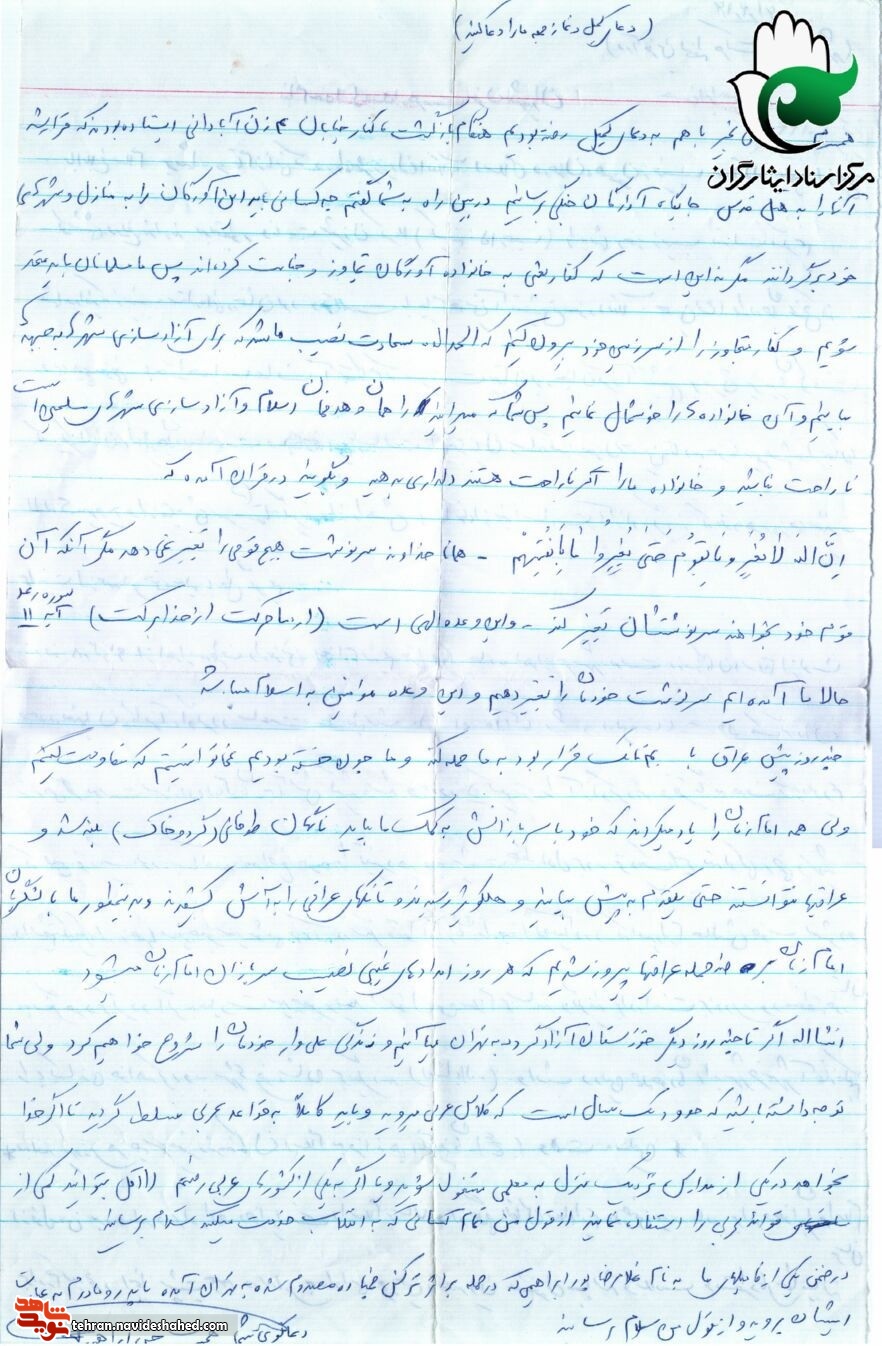 (دعای کمیل و نماز جمعه ما را دعا کنید)
مرکز اسناد ایثارگران
با هم به دعای کمیل رفته بودیم هنگام بازگشت کنار خیابان زن آبادانی ایستاده بودند که قرار شد
آنها را به هتل قدس جایگاه آوارگان جنگی برسانیم در بین راه به شما گفتم چه کسانی باید این آوارگان را به منازل و شهرهای
خود برگردانند مگر نه این است که کفار بعثی به خانواده آوارگان تجاوز و جنایت کرده‌اند پس ما مسلمانان باید متحد
شویم و کفار متجاوز را از سرزمین خود بیرون کنیم که الحمدالله سعادت نصیب ما شد که برای آزادسازی شهرها به جبهه
بیاییم و آن خانواده‌ها را خوشحال نماییم پس شما که میدانید راهمان و هدفمان اسلام و آزادسازی شهرهای اسلامی است
ناراحت نباشید و خانواده ما را اگر ناراحت هستند دلداری بدهید و بگویید در قرآن آمده که
اِنَّ اللهَ لا یُغَیِّرُ ما بِقَومٍ حَتّی یُغَیِّرُوا ما بِاَنفُسِهِم - همانا خداوند سرنوشت هیچ قومی را تغییر نمی‌دهد مگر آنکه آن
قوم خود بخواهند سرنوشتشان تغییر کند - و این وعده الهی است (از ما حرکت از خدا برکت) سوره رعد آیه ۱۱
حالا ما آمده‌ایم سرنوشت خودمان را تغییر دهیم و این وعده مؤمنین به اسلام میباشد
چند روز پیش عراق با تانک قرار بود به ما حمله کند و ما چون خسته بودیم نمی‌توانستیم که مقاومت کنیم
ولی همه امام زمان را یاد میکردند که خود با سربازانش به کمک ما بیاید ناگهان طوفانی (گرد و خاک) بلند شد و
عراقیها نتوانستند حتی یکقدم به پیش بیایند و جلوگیر رسیدند و تانکهای عراقی را به آتش کشیدند و بدینطور ما با لشگریان
امام زمان بر حمله عراقیها پیروز شدیم که هر روز امدادهای غیبی نصیب سربازان امام زمان میشود
انشااله اگر تا چند روز دیگر خوزستان آزاد گردد به تهران میآئیم و زندگی علی‌وار خودمان را شروع خواهیم کرد ولی شما
توجه داشته باشید که حدود یک سال است که کلاس عربی میروید و باید کاملاً به قواعد عربی مسلط گردید تا اگر خدا
بخواهد در یکی از مدارس نزدیک منزل به معلمی مشغول شوید و یا اگر به یکی از کشورهای عربی رفتیم لااقل بتوانید کمی از
قواعد عربی را استفاده نمایید از قول من تمام کسانی که به انقلاب خدمت میکنند سلام برسانید
در ضمن یکی از فامیلهای ما به نام غلامرضا پورابراهیمی که در حمله بر اثر ترکش خمپاره مصدوم شده به تهران آمده با پدر و مادرم به عیادت
ایشان بروید و از قول من سلام برسانید
دعاگوی شما
شاهد
نوید
tehran.navideshahed.com